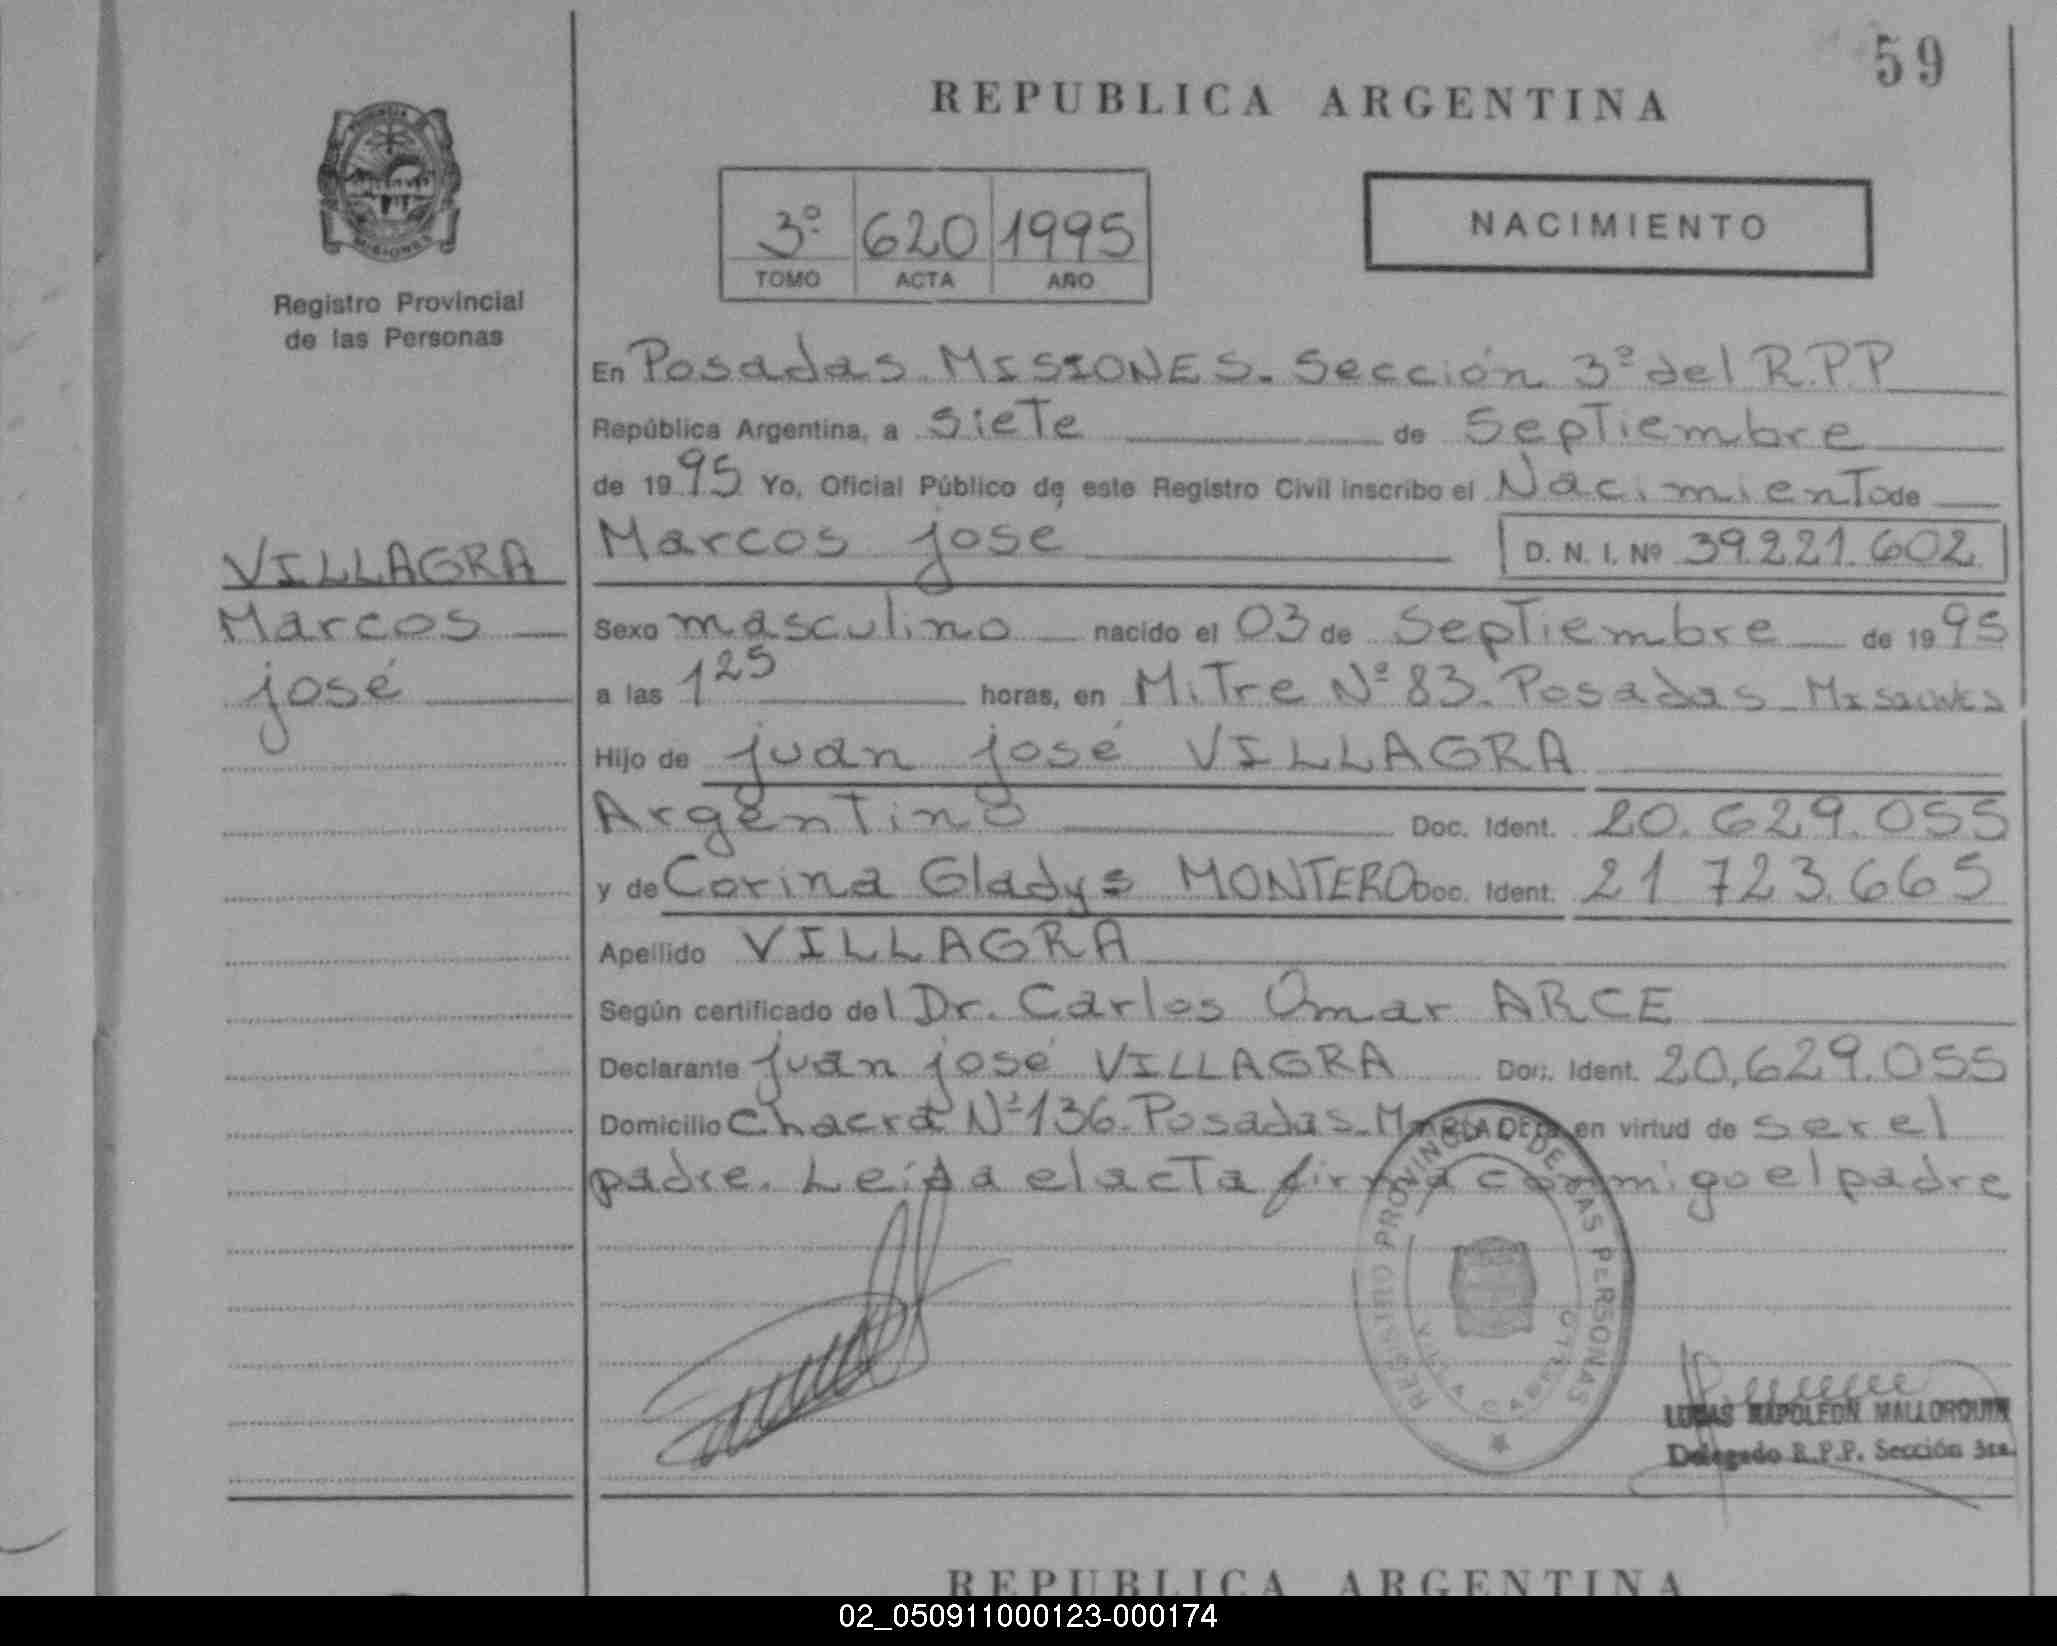 59
REPUBLICA ARGENTINA
3º 620 1995
TOMO ACTA AÑO
NACIMIENTO
MISIONES
Registro Provincial
de las Personas
En Posadas. MISIONES. Sección 3ª del R.P.P
República Argentina, a siete de Septiembre
de 1995 Yo, Oficial Público de este Registro Civil inscribo el Nacimiento de
Marcos josé D. N. I. Nº 39.221.602
VILLAGRA
Marcos
josé
Sexo masculino nacido el 03 de Septiembre de 1995
a las 1 25 horas, en Mitre Nº 83. Posadas - Misiones
Hijo de juan josé VILLAGRA
Argentino Doc. Ident. 20.629.055
y de Corina Gladys MONTERO Doc. Ident. 21 723.665
Apellido VILLAGRA
Según certificado del Dr. Carlos Omar ARCE
Declarante juan josé VILLAGRA Doc. Ident. 20.629.055
Domicilio Chacra Nº 136. Posadas - en virtud de ser el
padre. Leída el acta firma conmigo el padre
REGISTRO PROVINCIAL DE LAS PERSONAS
LUCAS NAPOLEON MALLORQUIN
Delegado R.P.P. Sección 3ra.
REPUBLICA ARGENTINA
02_050911000123-000174